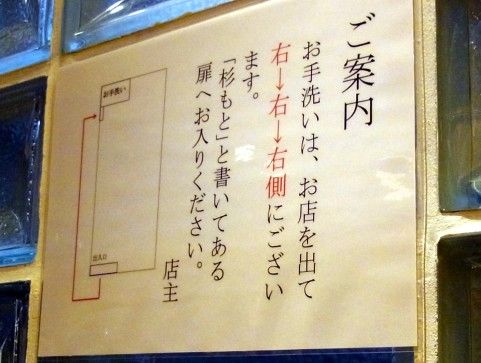 ご案内
お手洗いは、お店を出て
右→右→右側にござい
ます。
「杉もと」と書いてある
扉へお入りください。
店主
お手洗い
出入口